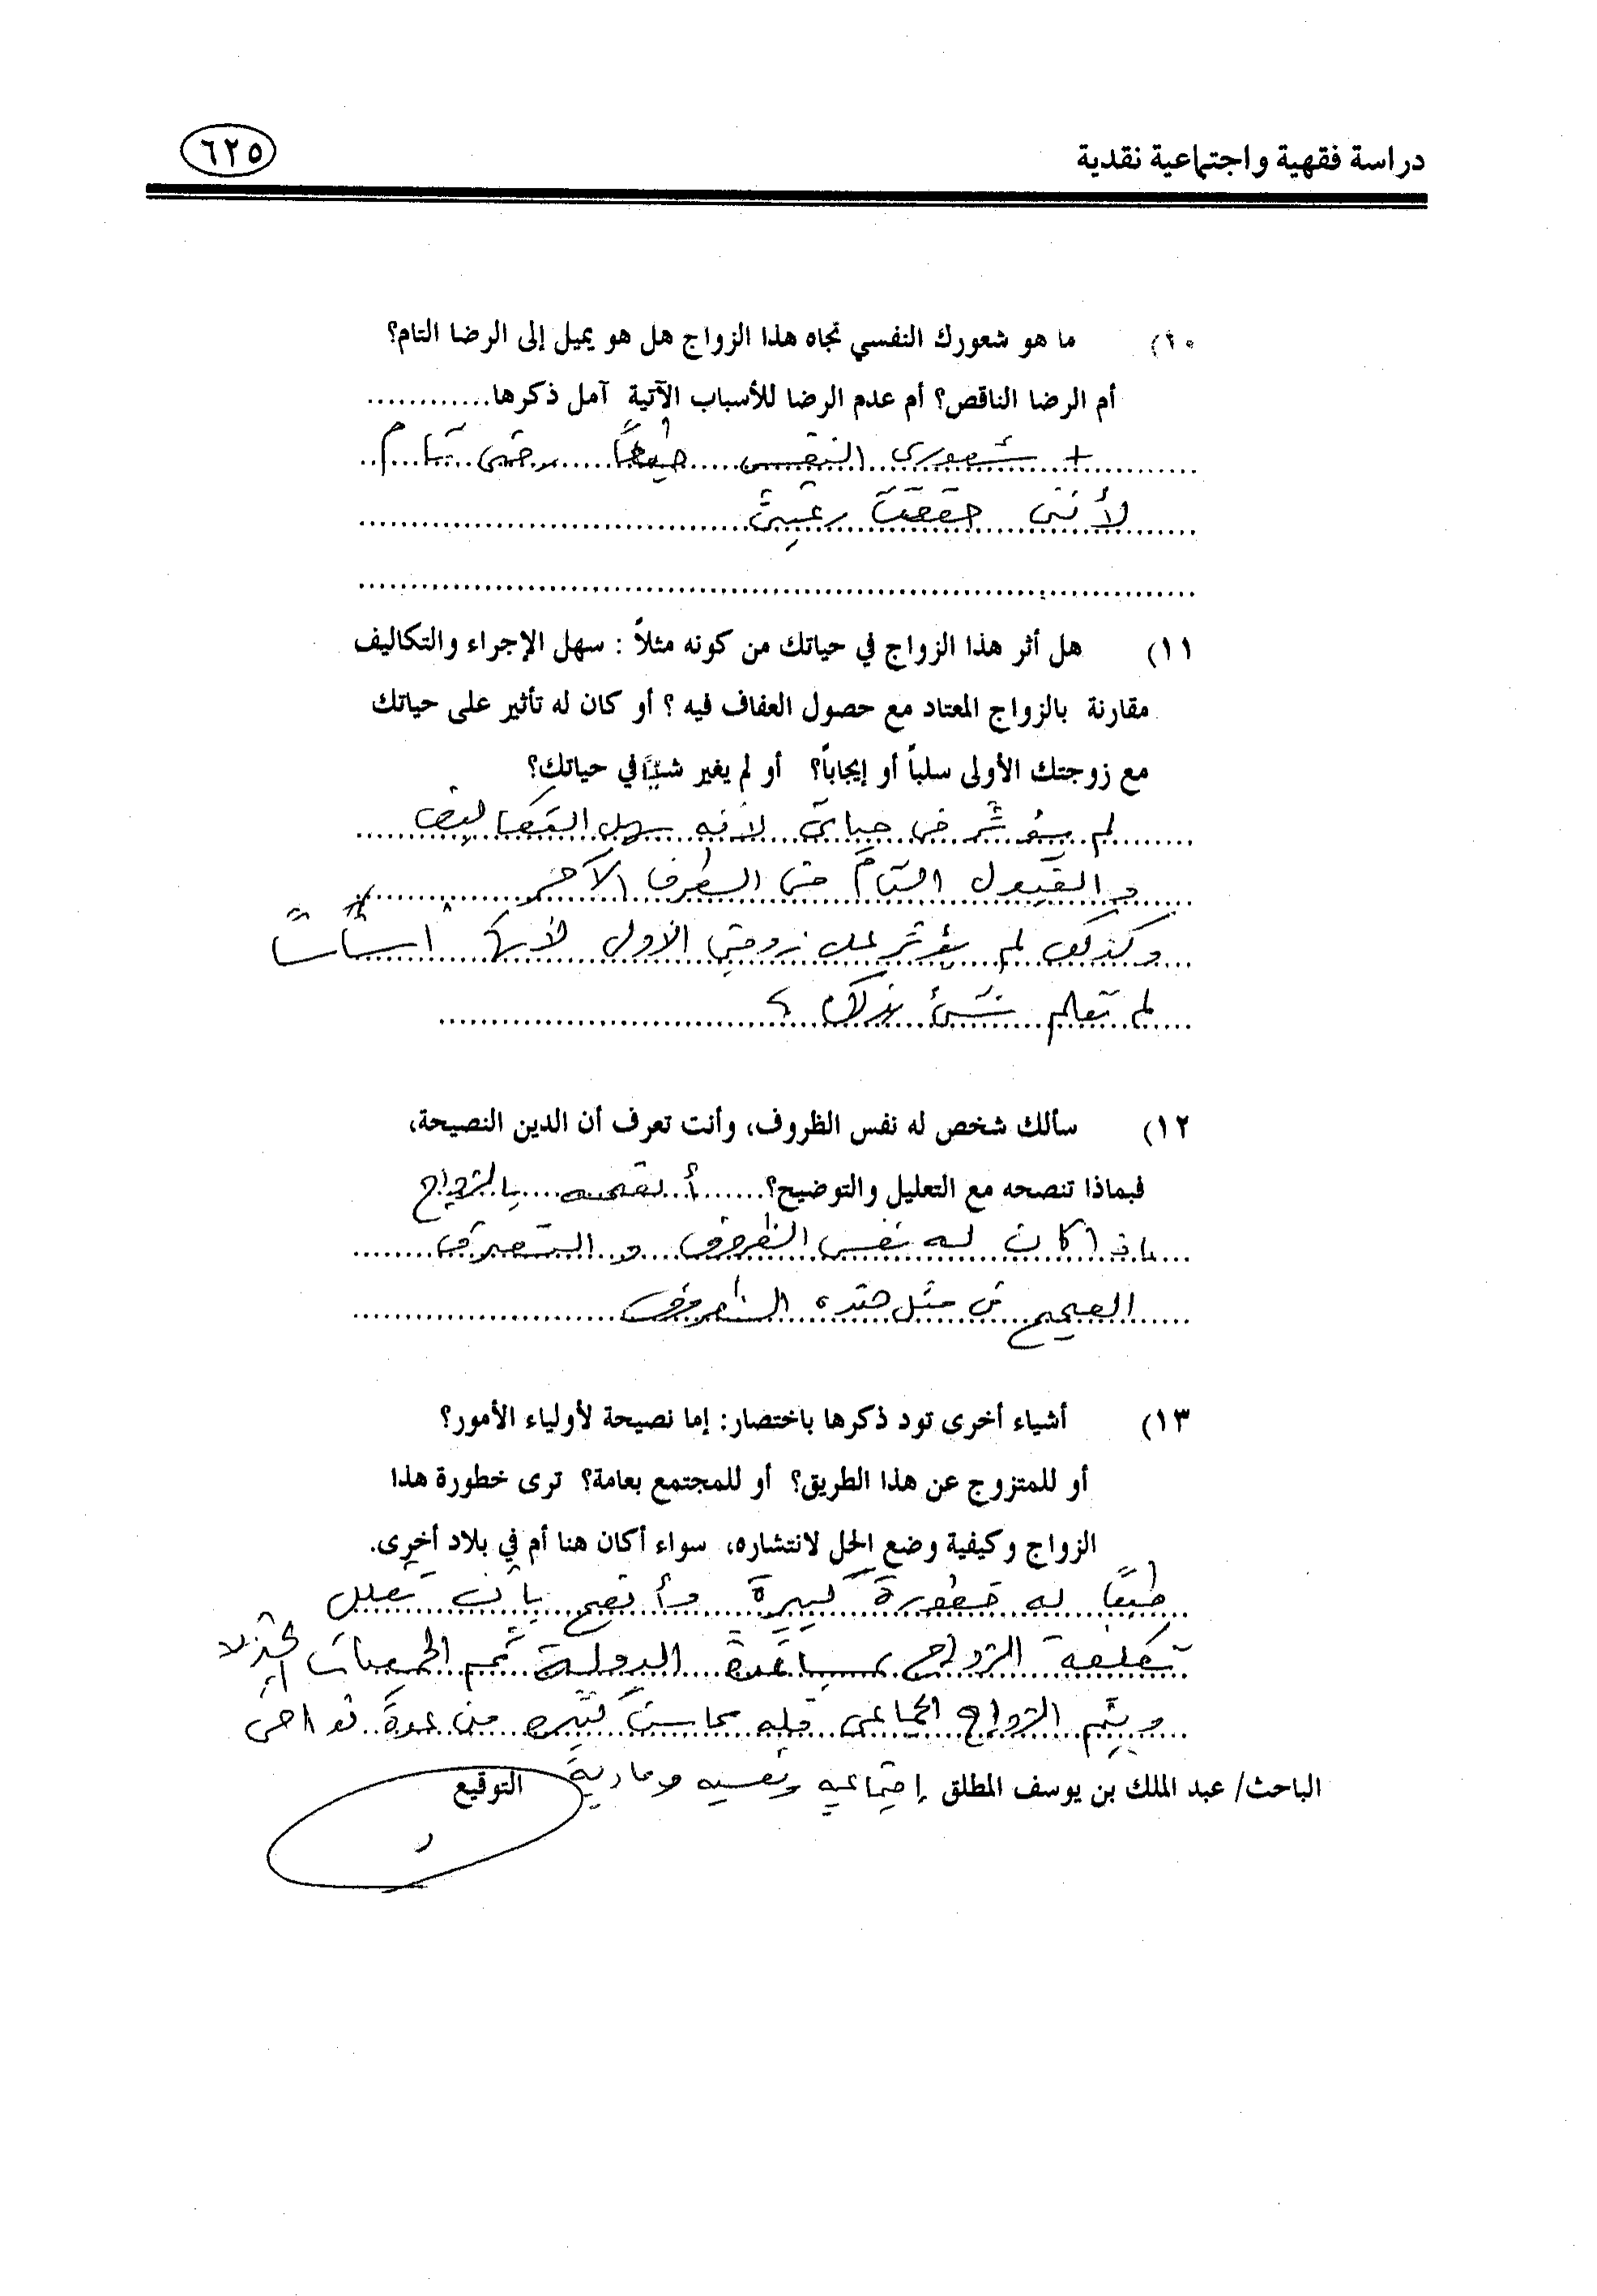 دراسة فقهية واجتماعية نقدية
٦٢٥
١٠) ما هو شعورك النفسي تجاه هذا الزواج هل هو يميل إلى الرضا التام؟
أم الرضا الناقص؟ أم عدم الرضا للأسباب الآتية آمل ذكرها............
+ شعورى النفسى طبعاً رضى تام
لأننى حققت رغبتى
١١) هل أثر هذا الزواج في حياتك من كونه مثلاً : سهل الإجراء والتكاليف
مقارنة بالزواج المعتاد مع حصول العفاف فيه ؟ أو كان له تأثير على حياتك
مع زوجتك الأولى سلباً أو إيجاباً؟ أو لم يغير شيئاً في حياتك؟
لم يؤثر فى حياتى لأنه سهل التكاليف
والقبول التام من الطرف الآخر
وكذلك لم يؤثر على زوجتى الأولى لأنها اساساً
لم تعلم شئ بذلك
١٢) سألك شخص له نفس الظروف، وأنت تعرف أن الدين النصيحة،
فبماذا تنصحه مع التعليل والتوضيح؟...... أنصحه بالزواج
إذا كان له نفس الظروف و التصرف
الصحيح فى مثل هذه الظروف
١٣) أشياء أخرى تود ذكرها باختصار: إما نصيحة لأولياء الأمور؟
أو للمتزوج عن هذا الطريق؟ أو للمجتمع بعامة؟ ترى خطورة هذا
الزواج وكيفية وضع الحل لانتشاره، سواء أكان هنا أم في بلاد أخرى.
طبعاً له خطورة كبيرة وأنصح بأن تقلل
تكلفة الزواج بمساعدة الدولة ثم الجمعيات
ويتم الزواج الجماعى فله محاسن كثيره من عدة نواحى
الباحث/ عبد الملك بن يوسف المطلق إجتماعيه ونفسيه ومادية التوقيع